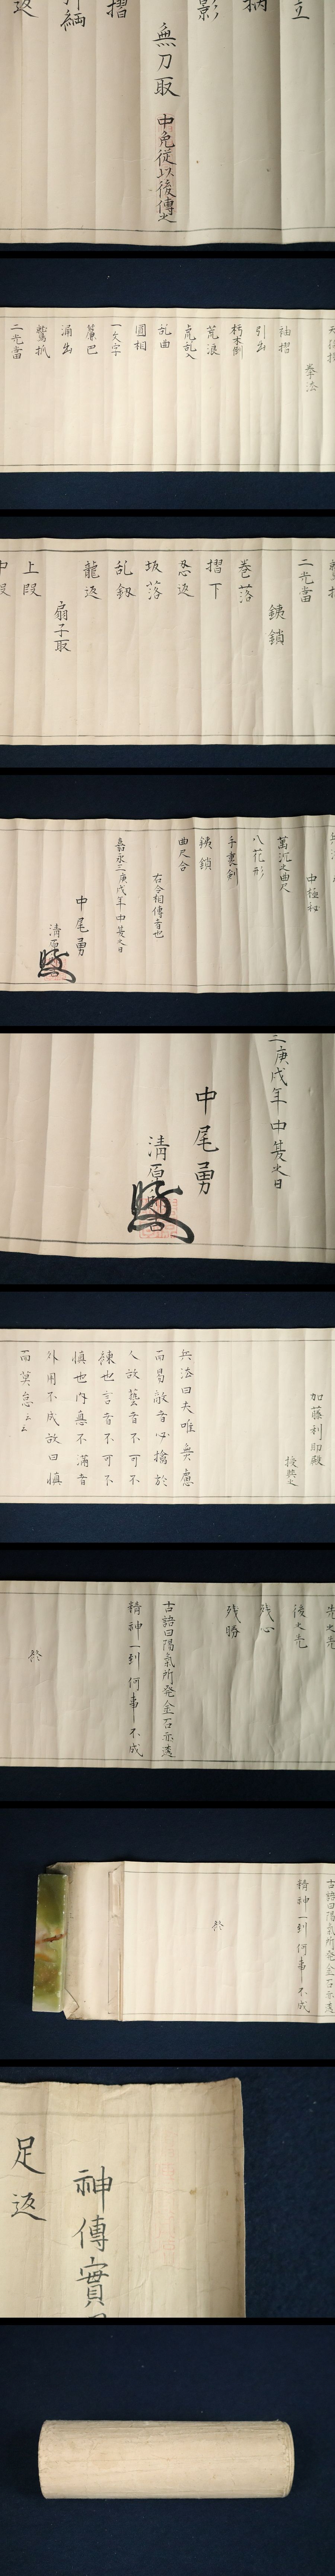 立
柄
影
摺
返
無刀取 中免従以後傳之
拳法
袖摺
引出
朽木倒
荒浪
虎乱入
乱曲
圓相
一文字
簾巴
涌出
鷲抓
二光當
二光當
鉄鎖
巻落
摺下
忍返
坂落
乱釼
龍返
扇子取
上段
中段
中極秘
萬沉之曲尺
八花形
手裏剣
鉄鎖
曲尺合
右令相傳者也
嘉永三庚戌年中冬之日
中尾勇
清原
二庚戌年中冬之日
中尾勇
清原
加藤利助殿
授与之
兵法曰夫唯無慮
而易敵者必擒於
人故藝者不可不
練也言者不可不
慎也内意不満者
外用不成故曰慎
而莫怠云云
先之先
後之先
残心
残勝
古語曰陽氣所発金石亦透
精神一到何事不成
終
古語曰陽氣所発金石亦透
精神一到何事不成
終
神傳實
足返